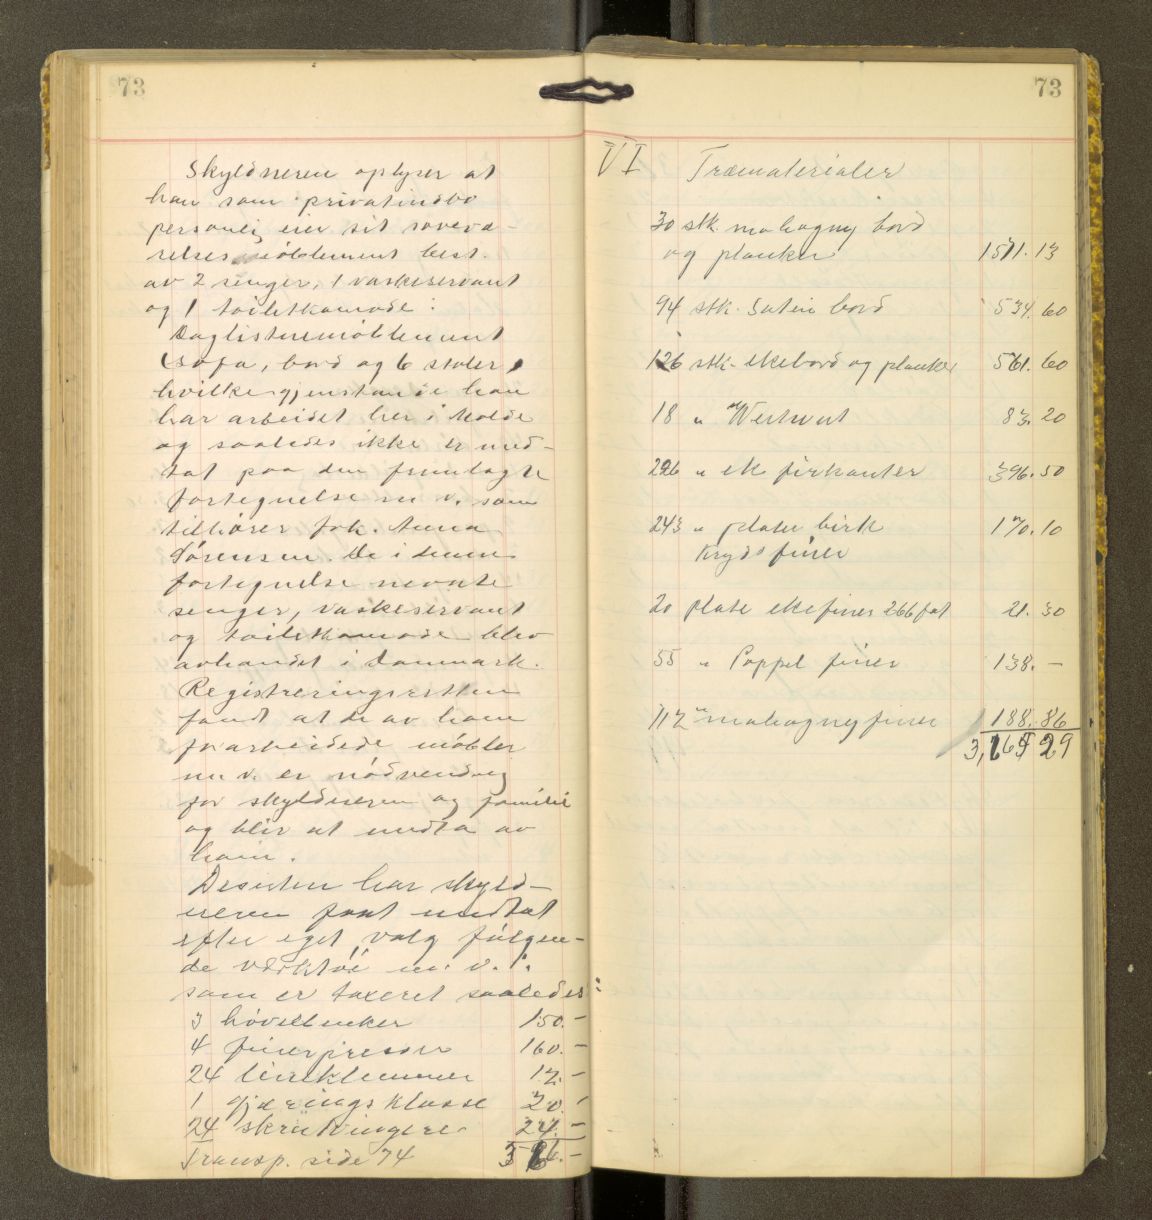 73
Skyldneren oplyser at
han som privatindbo
personlig eier sit soveva-
relsesmøblement best.
av 2 senger, 1 vaskeservant
og 1 toiletkomode:
Daglistuemøblement
(sofa, bord og 6 stoler,
hvilke gjenstande han
har arbeidet her i Molde
og saaledes ikke er med-
tat paa den fremlagte
fortegnelse m. v. som
tilhører frk. Anna
Sørensen. De i denne
fortegnelse nevnte
senger, vaskeservant
og toiletkomode blev
avhændet i Danmark.
Registreringsretten
fandt at de av ham
forarbeidede møbler
m. v. er nødvendig
for skyldneren og familie
og blir at undta av
ham.
Desuten har skyld-
neren faat undtat
efter eget valg følgen-
de værktøi m. v.
som er taxeret saaledes:
3 høvelbenker 150.-
4 finerpresser 160.-
24 limklemmer 12.-
1 gjærings klasse 20.-
24 skrutvingere 24.-
Transp. side 74 366.-
73
VI Træmaterialer
30 stk. mahogny bord
og planker 1571.13
94 stk. Satin bord 534.60
126 stk. ekebord og planker 561.60
18 " 83.20
226 " ek firkanter 396.50
243 " plater birk 170.10
Kryds finer
20 plate ekefiner 266 fot 21.30
55 " Poppel finer 138.-
112 " mahogny finer 188.86
3,665 29